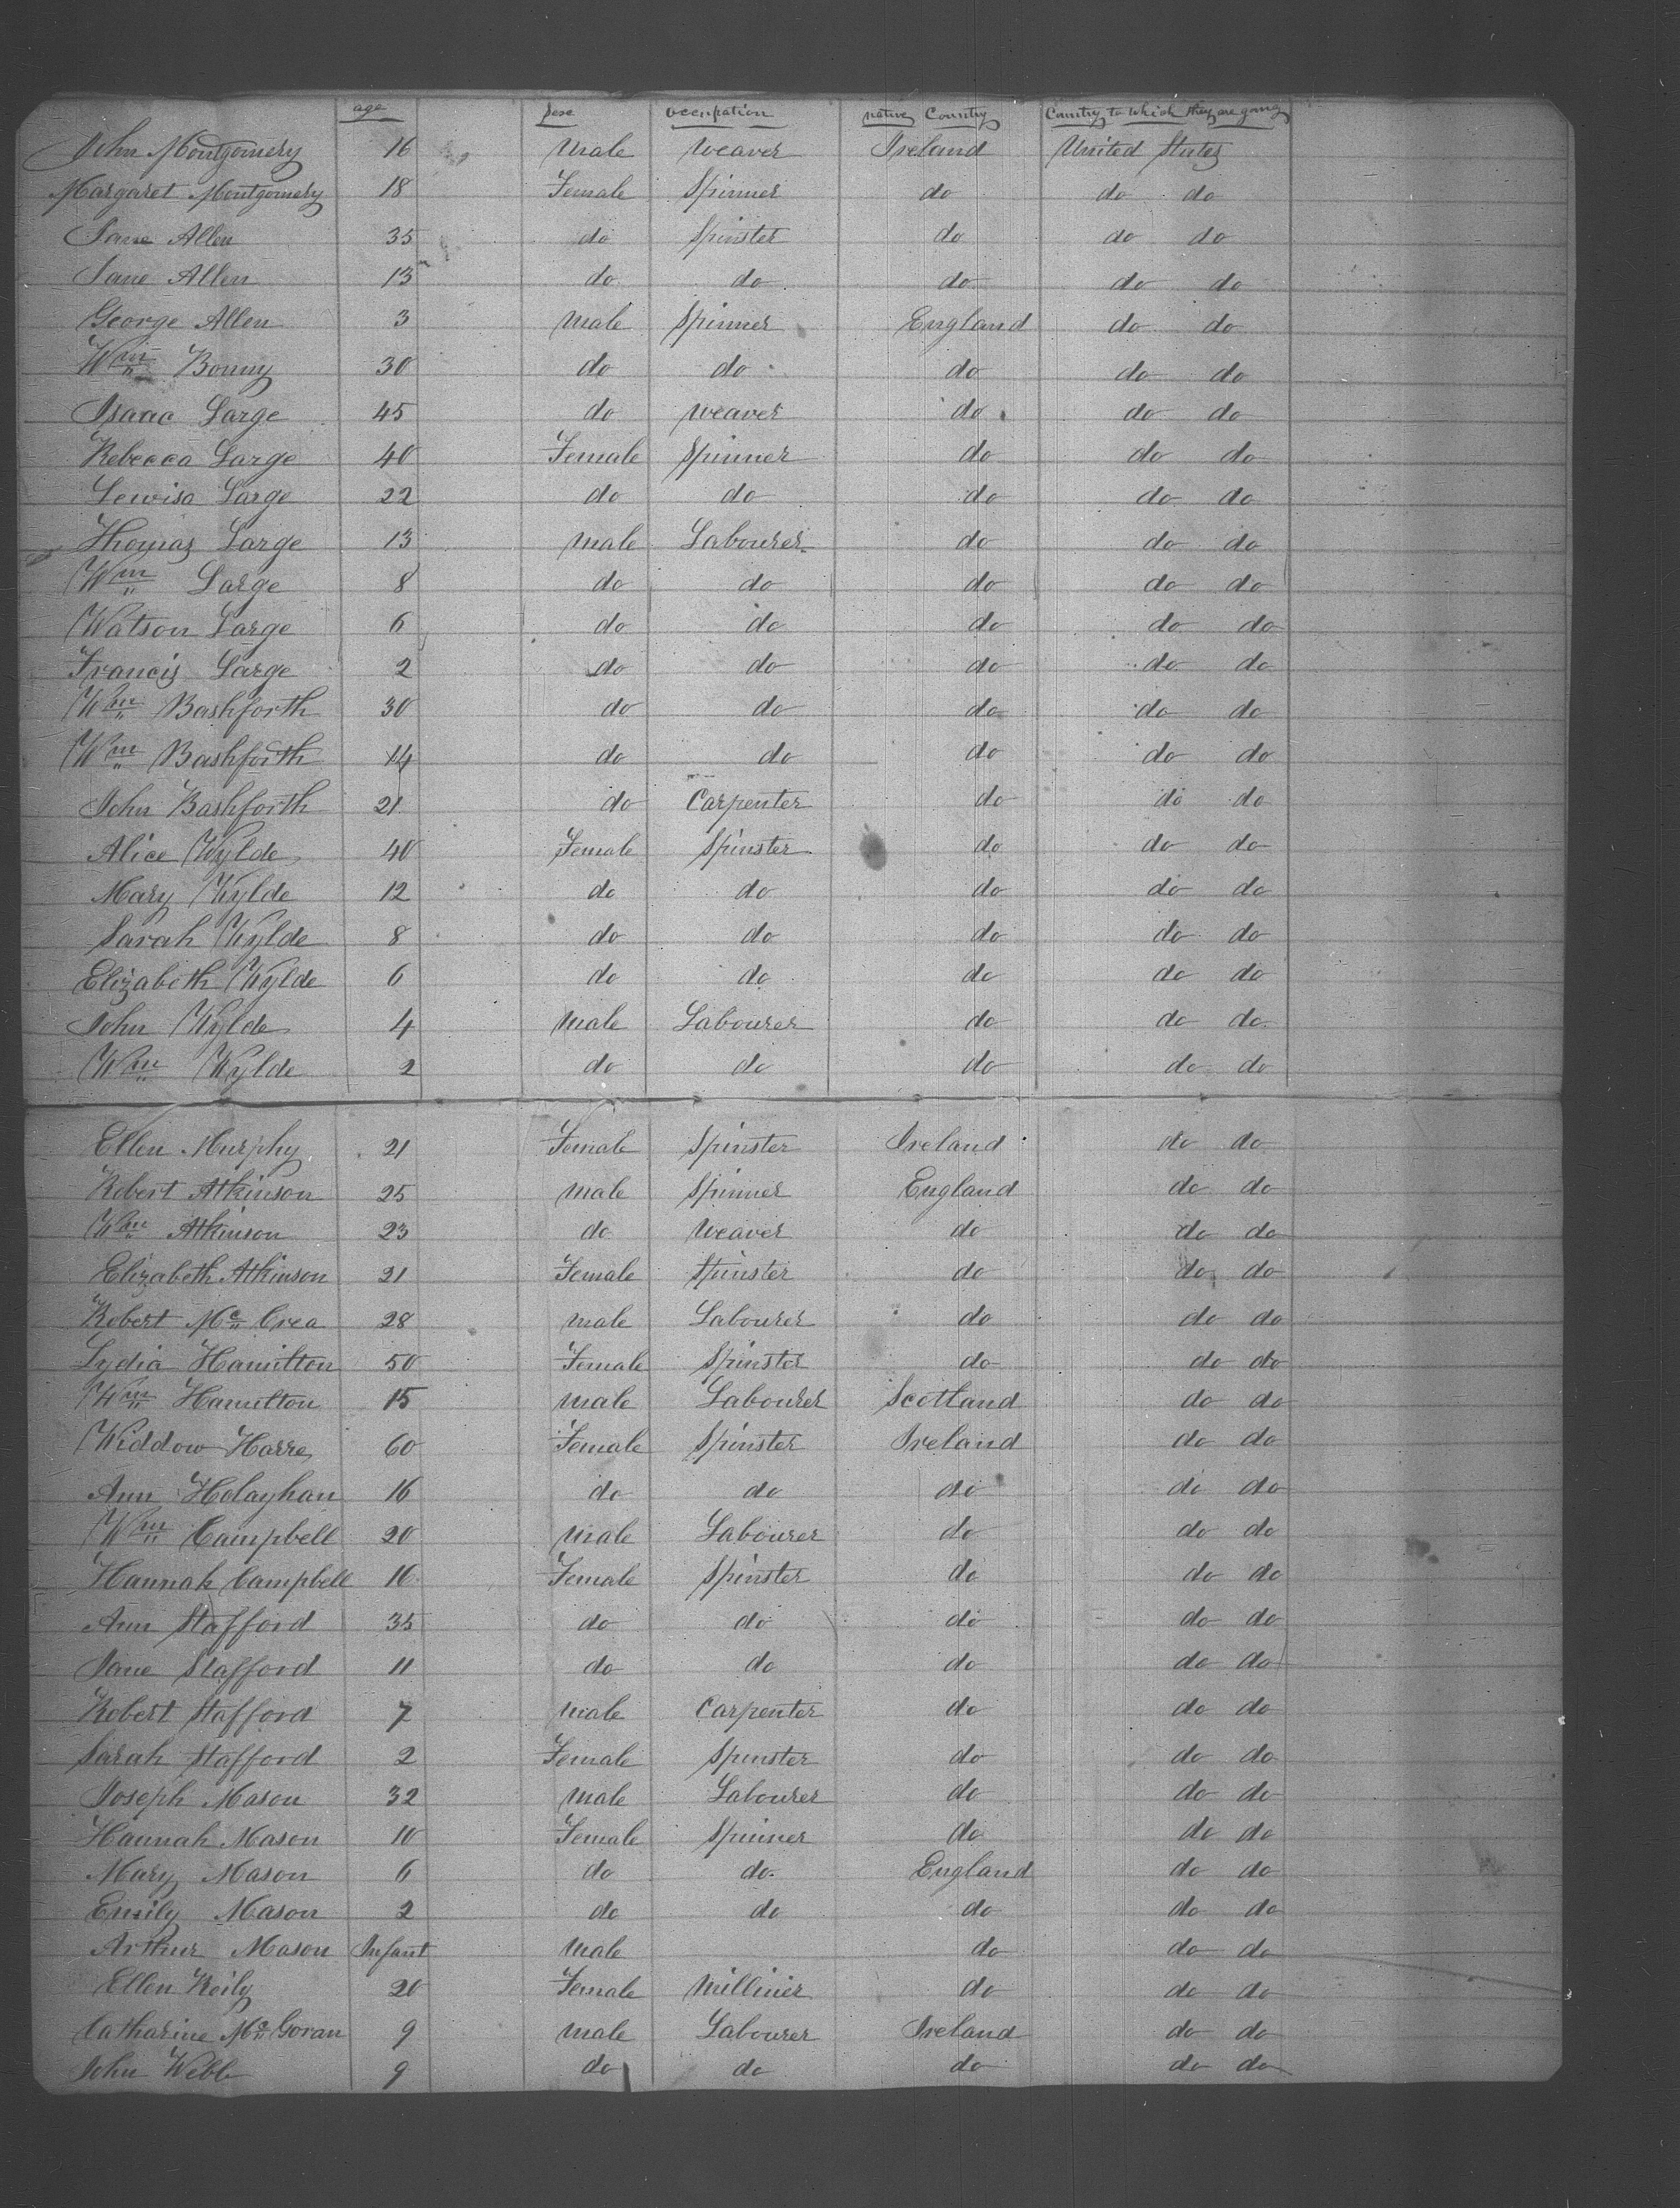 age sex occupation native Country Country to which they are going
John Montgomery 16 Male Weaver Ireland United States
Margaret Montgomery 18 Female Spinner do do do
Jane Allen 35 do Spinster do do do
Jane Allen 13 do do do do do
George Allen 3 Male Spinner England do do
Wm Bonny 30 do do do do do
Isaac Large 45 do weaver do do do
Rebecca Large 40 Female Spinner do do do
Lewisa Large 22 do do do do do
Thomas Large 13 male Labourer do do do
Wm Large 8 do do do do do
Watson Large 6 do do do do do
Francis Large 2 do do do do do
Wm Bashforth 30 do do do do do
Wm Bashforth 14 do do do do do
John Bashforth 21 do Carpenter do do do
Alice Wylde 40 Female Spinster do do do
Mary Wylde 12 do do do do do
Sarah Wylde 8 do do do do do
Elizabeth Wylde 6 do do do do do
John Wylde 4 Male Labourer do do do
Wm Wylde 2 do do do do do
Ellen Murphy 21 Female Spinster Ireland do do
Robert Atkinson 25 male Spinner England do do
Wm Atkinson 23 do Weaver do do do
Elizabeth Atkinson 21 Female Spinster do do do
Robert Mc Crea 28 male Labourer do do do
Lydia Hamilton 50 Female Spinster do do do
Wm Hamilton 15 male Labourer Scotland do do
Widdow Harre 60 Female Spinster Ireland do do
Ann Holayhan 16 do do do do do
Wm Campbell 20 male Labourer do do do
Hannah Campbell 16 Female Spinster do do do
Ann Stafford 35 do do do do do
Jane Stafford 11 do do do do do
Robert Stafford 7 male Carpenter do do do
Sarah Stafford 2 Female Spinster do do do
Joseph Mason 32 male Labourer do do do
Hannah Mason 10 Female Spinner do do do
Mary Mason 6 do do England do do
Emily Mason 2 do do do do do
Arthur Mason Infant Male do do do
Ellen Reily 20 Female Millinier do do do
Catharine Mc Goran 9 male Labourer Ireland do do
John Webb 9 do do do do do